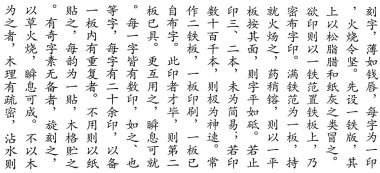 刻字，薄如钱唇，每字为一印
，火烧令坚。先设一铁版，其
上以松脂腊和纸灰之类冒之。
欲印则以一铁范置铁板上，乃
密布字印。满铁范为一板，持
就火炀之，药稍镕，则以一平
板按其面，则字平如砥。若止
印三、二本，未为简易；若印
数十百千本，则极为神速。常
作二铁板，一板印刷，一板已
自布字。此印者才毕，则第二
板已具。更互用之，瞬息可就
。每一字皆有数印，如之、也
等字，每字有二十余印，以备
一板内有重复者。不用则以纸
贴之，每韵为一贴，木格贮之
。有奇字素无备者，旋刻之，
以草火烧，瞬息可成。不以木
为之者，木理有疏密，沾水则